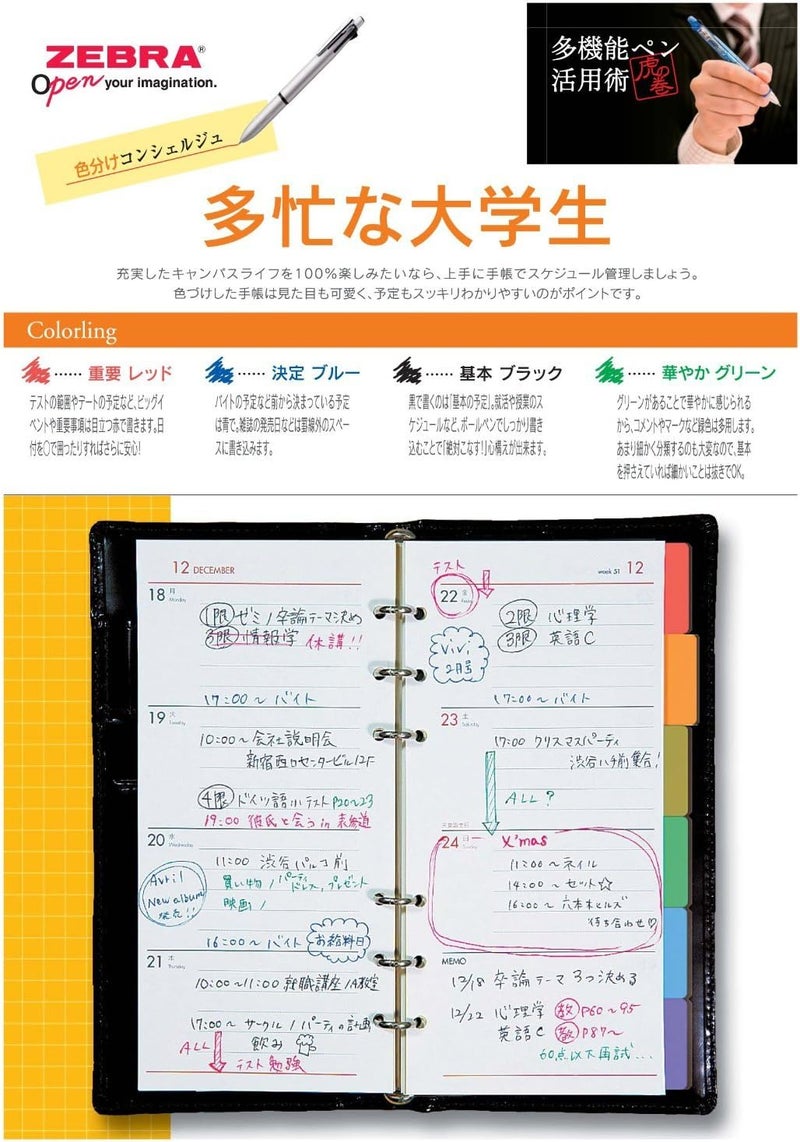 ZEBRA®
Open your imagination.
色分けコンシェルジュ
多機能ペン
活用術
虎の巻
多忙な大学生
充実したキャンパスライフを100%楽しみたいなら、上手に手帳でスケジュール管理しましょう。
色づけした手帳は見た目も可愛く、予定もスッキリわかりやすいのがポイントです。
Colorling
……重要 レッド
テストの範囲やデートの予定など、ビッグイ
ベントや重要事項は目立つ赤で書きます。日
付を○で囲ったりすればさらに安心!
……決定 ブルー
バイトの予定など前から決まっている予定
は青で。雑誌の発売日などは罫線外のスペー
スに書き込みます。
……基本 ブラック
黒で書くのは「基本の予定」。就活や授業のス
ケジュールなど、ボールペンでしっかり書き
込むことで「絶対こなす!」心構えが出来ます。
……華やか グリーン
グリーンがあることで華やかに感じられる
から、コメントやマークなど緑色は多用します。
あまり細かく分類するのも大変なので、基本
を押さえていれば細かいことは抜きでOK。
12 DECEMBER
18 月
Monday
1限 ゼミ / 卒論テーマ決め
3限 情報学 休講!!
17:00~ バイト
19 火
Tuesday
10:00~会社説明会
新宿西口センタービル12F
4限 ドイツ語小テスト P20~23
19:00 彼氏と会う in 表参道
20 水
Wednesday
11:00 渋谷パルコ前
買い物 / パーティ
ドレス, プレゼント
映画 /
Avril
New album
発売!!
16:00~ バイト
お給料日
21 木
Thursday
10:00~11:00 就職講座 / A教室
17:00~ サークル / パーティの計画
飲み
ALL
テスト勉強
テスト
week 51 12
22 金
Friday
2限 心理学
3限 英語C
ViVi
2月号
17:00~ バイト
23 土
Saturday
17:00 クリスマスパーティ
渋谷ハチ前集合!
ALL?
天皇誕生日
24 日
Sunday
X'mas
11:00~ネイル
14:00~セット☆
16:00~六本木ヒルズ
待ち合わせ♡
MEMO
12/18 卒論テーマ 3つ決める
12/22 心理学 教 P60~95
英語C 教 P87~
60点以下再試...